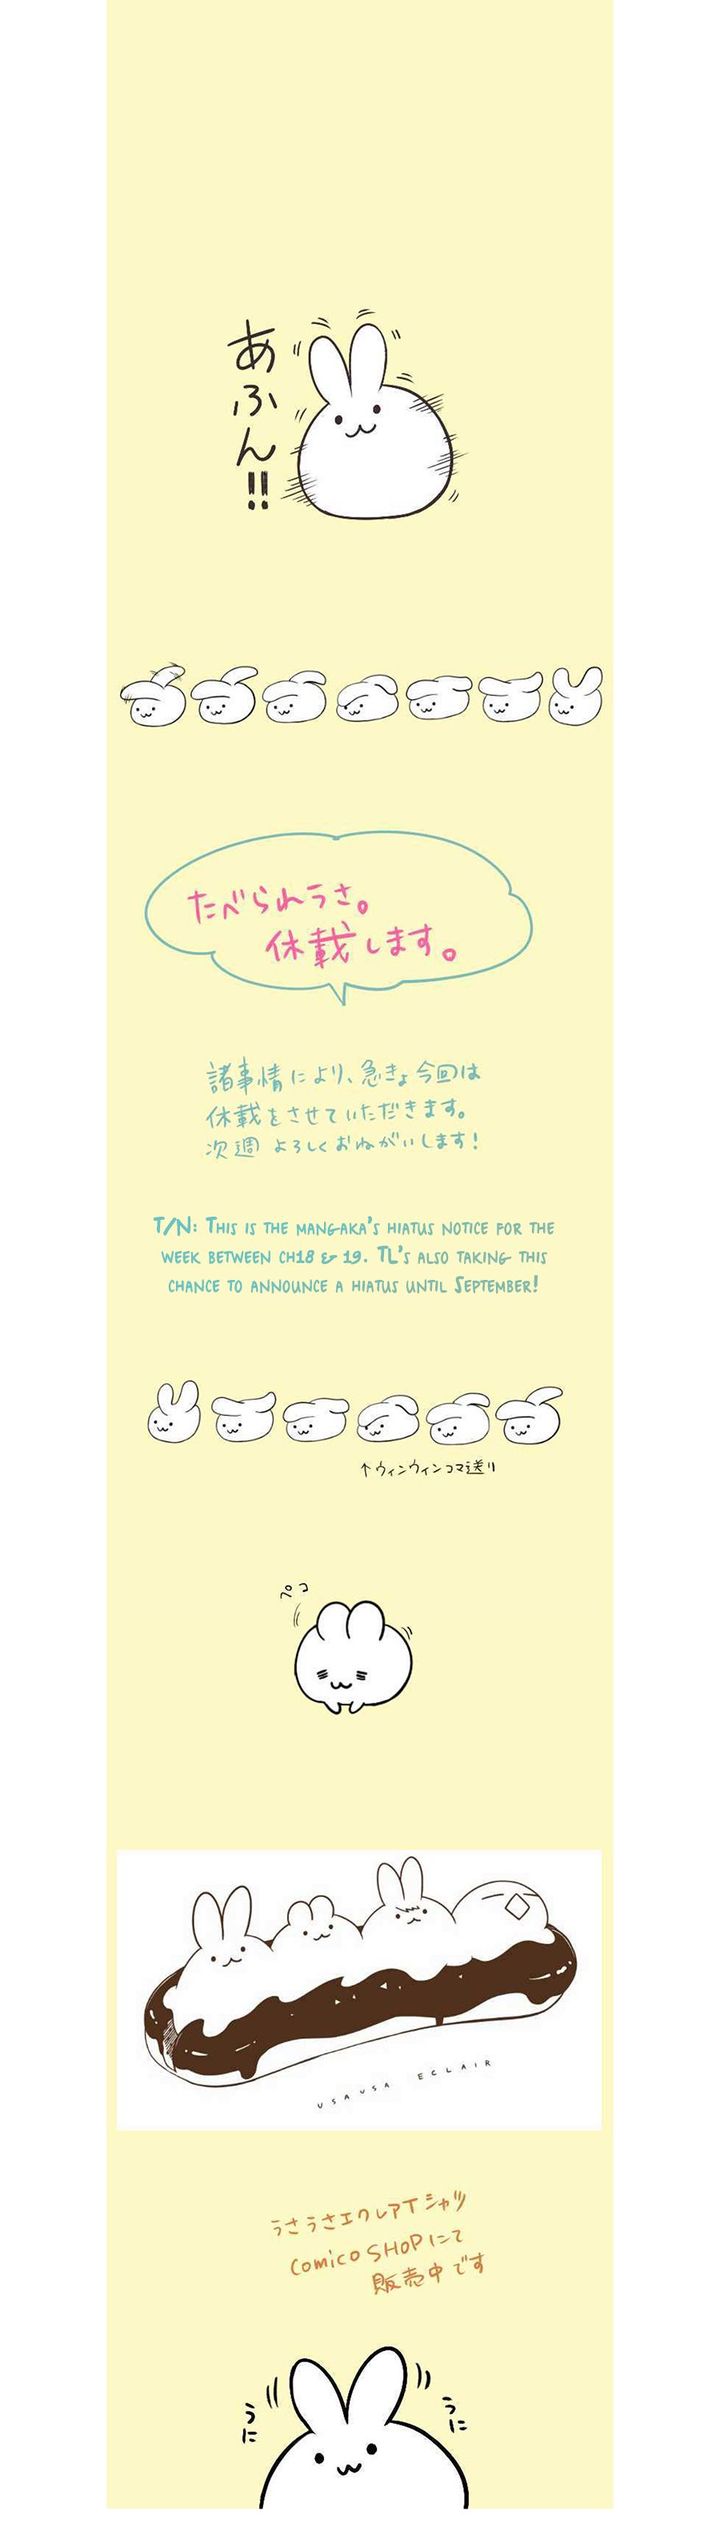 あふん!!
たべられうさ。
休載します。
諸事情により、急きょ今回は
休載をさせていただきます。
次週 よろしくおねがいします!
T/N: THIS IS THE MANGAKA'S HIATUS NOTICE FOR THE
WEEK BETWEEN CH18 & 19. TL'S ALSO TAKING THIS
CHANCE TO ANNOUNCE A HIATUS UNTIL SEPTEMBER!
↑ウィンウィンコマ送り
ペコ
USAUSA ECLAIR
うさうさエクレアTシャツ
comico SHOPにて
販売中です
うに
うに